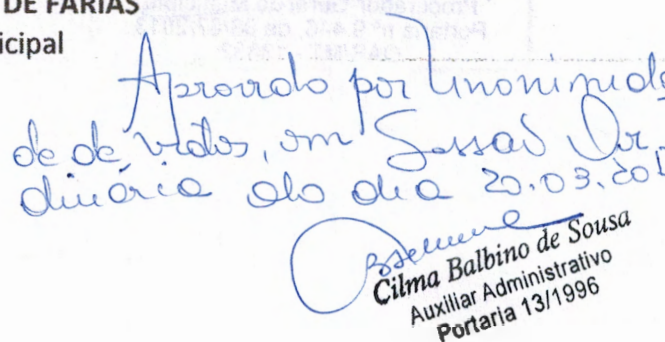 DE FARIAS
icipal
Aprovado por Unanimida
de de votos, em Sessão Or
dinária do dia 20.03.201
Cilma Balbino de Sousa
Auxiliar Administrativo
Portaria 13/1996